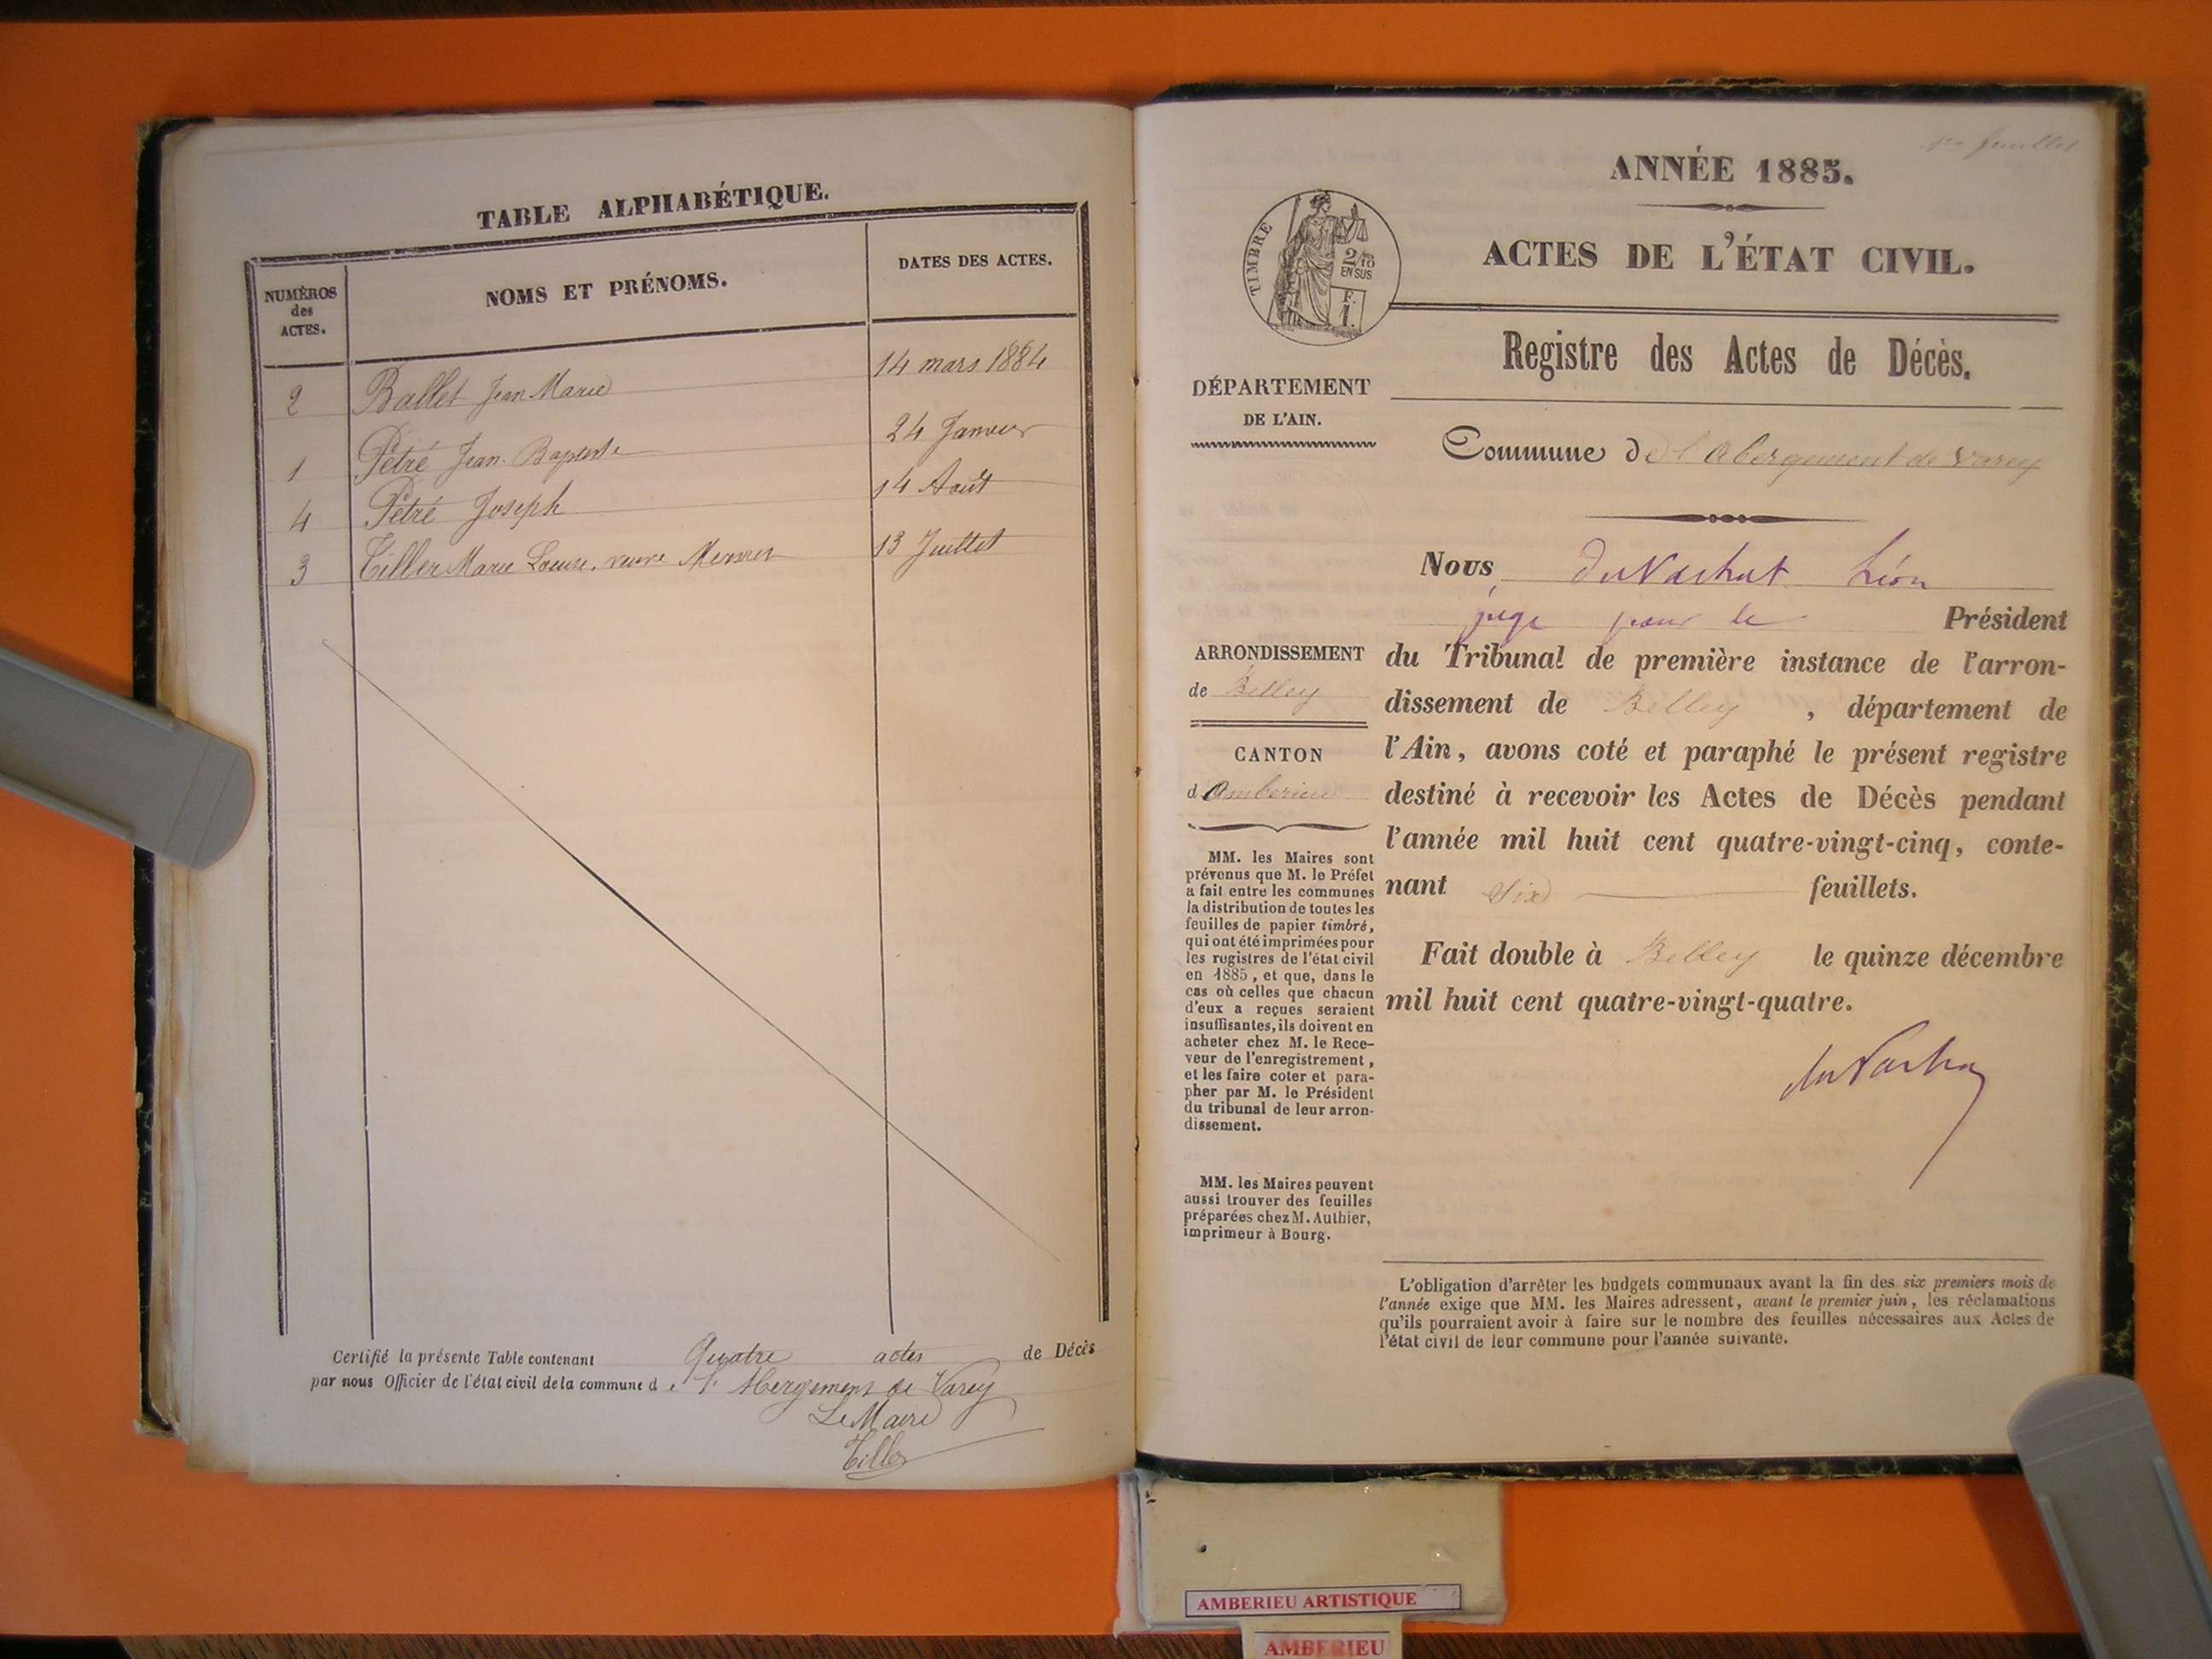 TABLE ALPHABÉTIQUE.
NUMÉROS
des
ACTES.
NOMS ET PRÉNOMS.
DATES DES ACTES.
2 Ballet Jean Marie 14 mars 1884
1 Pétré Jean-Baptiste 24 Janvier
4 Pétré Joseph 14 Août
3 Tiller Marie Louise, veuve 13 Juillet
Certifié la présente Table contenant Quatre actes de Décès
par nous Officier de l'état civil de la commune de l'Abergement de Varey
Le Maire
Tiller
1er feuillet
ANNÉE 1885.
TIMBRE
2/10
EN SUS
F.
1.
ACTES DE L'ÉTAT CIVIL.
Registre des Actes de Décès.
DÉPARTEMENT
DE L'AIN.
Commune de l'Abergement de Varey
Nous Léon
juge pour le Président
du Tribunal de première instance de l'arron-
dissement de Belley, département de
l'Ain, avons coté et paraphé le présent registre
destiné à recevoir les Actes de Décès pendant
l'année mil huit cent quatre-vingt-cinq, conte-
nant six feuillets.
Fait double à Belley le quinze décembre
mil huit cent quatre-vingt-quatre.
ARRONDISSEMENT
de Belley
CANTON
d'Amberieu
MM. les Maires sont
prévenus que M. le Préfet
a fait entre les communes
la distribution de toutes les
feuilles de papier timbré,
qui ont été imprimées pour
les registres de l'état civil
en 1885, et que, dans le
cas où celles que chacun
d'eux a reçues seraient
insuffisantes, ils doivent en
acheter chez M. le Rece-
veur de l'enregistrement,
et les faire coter et para-
pher par M. le Président
du tribunal de leur arron-
dissement.
MM. les Maires peuvent
aussi trouver des feuilles
préparées chez M. Authier,
imprimeur à Bourg.
L'obligation d'arrêter les budgets communaux avant la fin des six premiers mois de
l'année exige que MM. les Maires adressent, avant le premier juin, les réclamations
qu'ils pourraient avoir à faire sur le nombre des feuilles nécessaires aux Actes de
l'état civil de leur commune pour l'année suivante.
AMBERIEU ARTISTIQUE
AMBERIEU